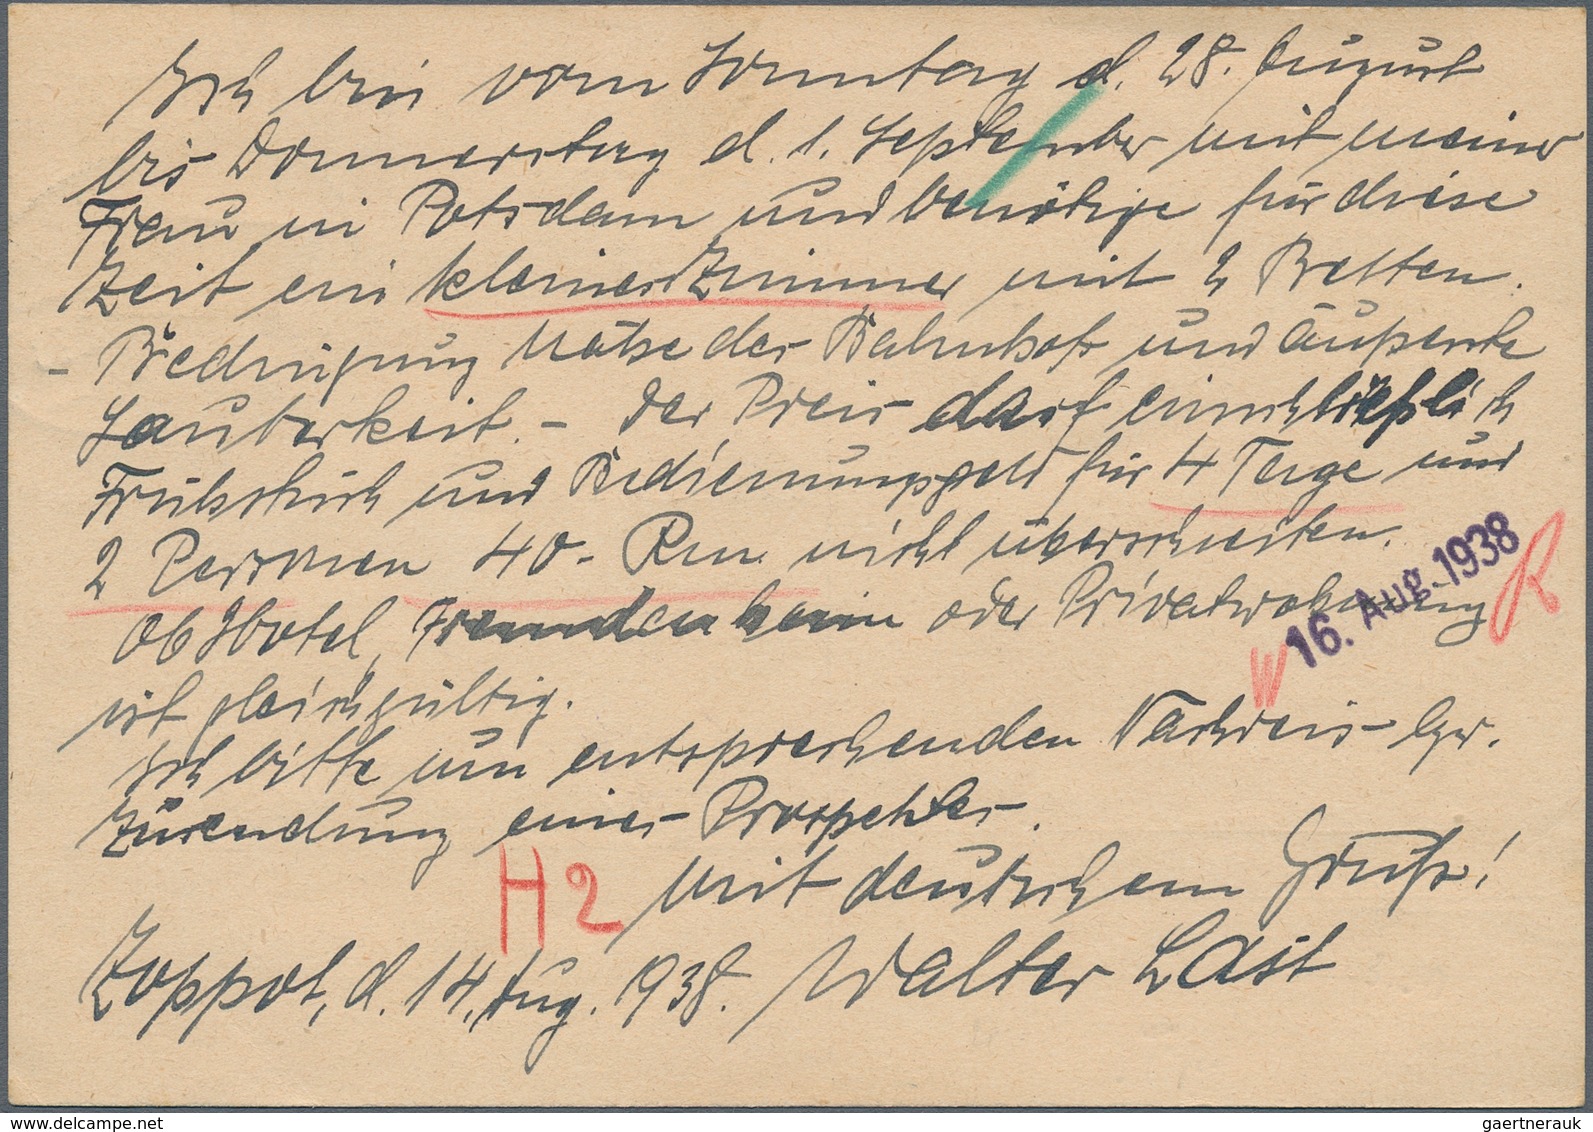 Ich bin vom Sonntag d. 28. August
bis Donnerstag d. 1. September mit meiner
Frau in Potsdam und benötige für diese
Zeit ein kleines Zimmer mit 2 Betten.
- Bedingung Nähe des Bahnhofs und äußerste
Sauberkeit. - Der Preis darf einschließlich
Frühstück und Bedienungsgeld für 4 Tage und
2 Personen 40.- Rm. nicht überschreiten.
Ob Hotel, Fremdenheim oder Privatwohnung
ist gleichgültig.
W 16. Aug. 1938 R
Ich bitte um entsprechenden Nachweis bzw.
Zusendung eines Prospektes.
H2
Mit deutschem Gruß!
Zoppot, d. 14. Aug. 1938. Walter Last
www.delcampe.net
gaertnerauk